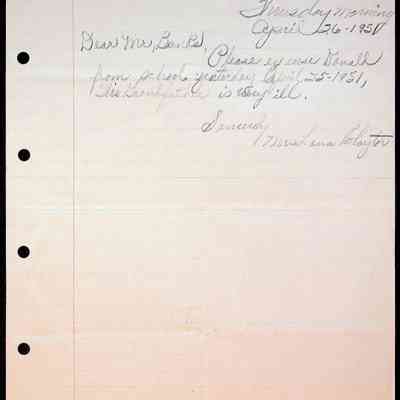 Thursday Morning
April 26-1951
Dear Mr. Banks,
Please excuse Donald
from school yesterday April 25-1951,
His Grandfather is very ill.
Sincerely,
Mrs. Clayton